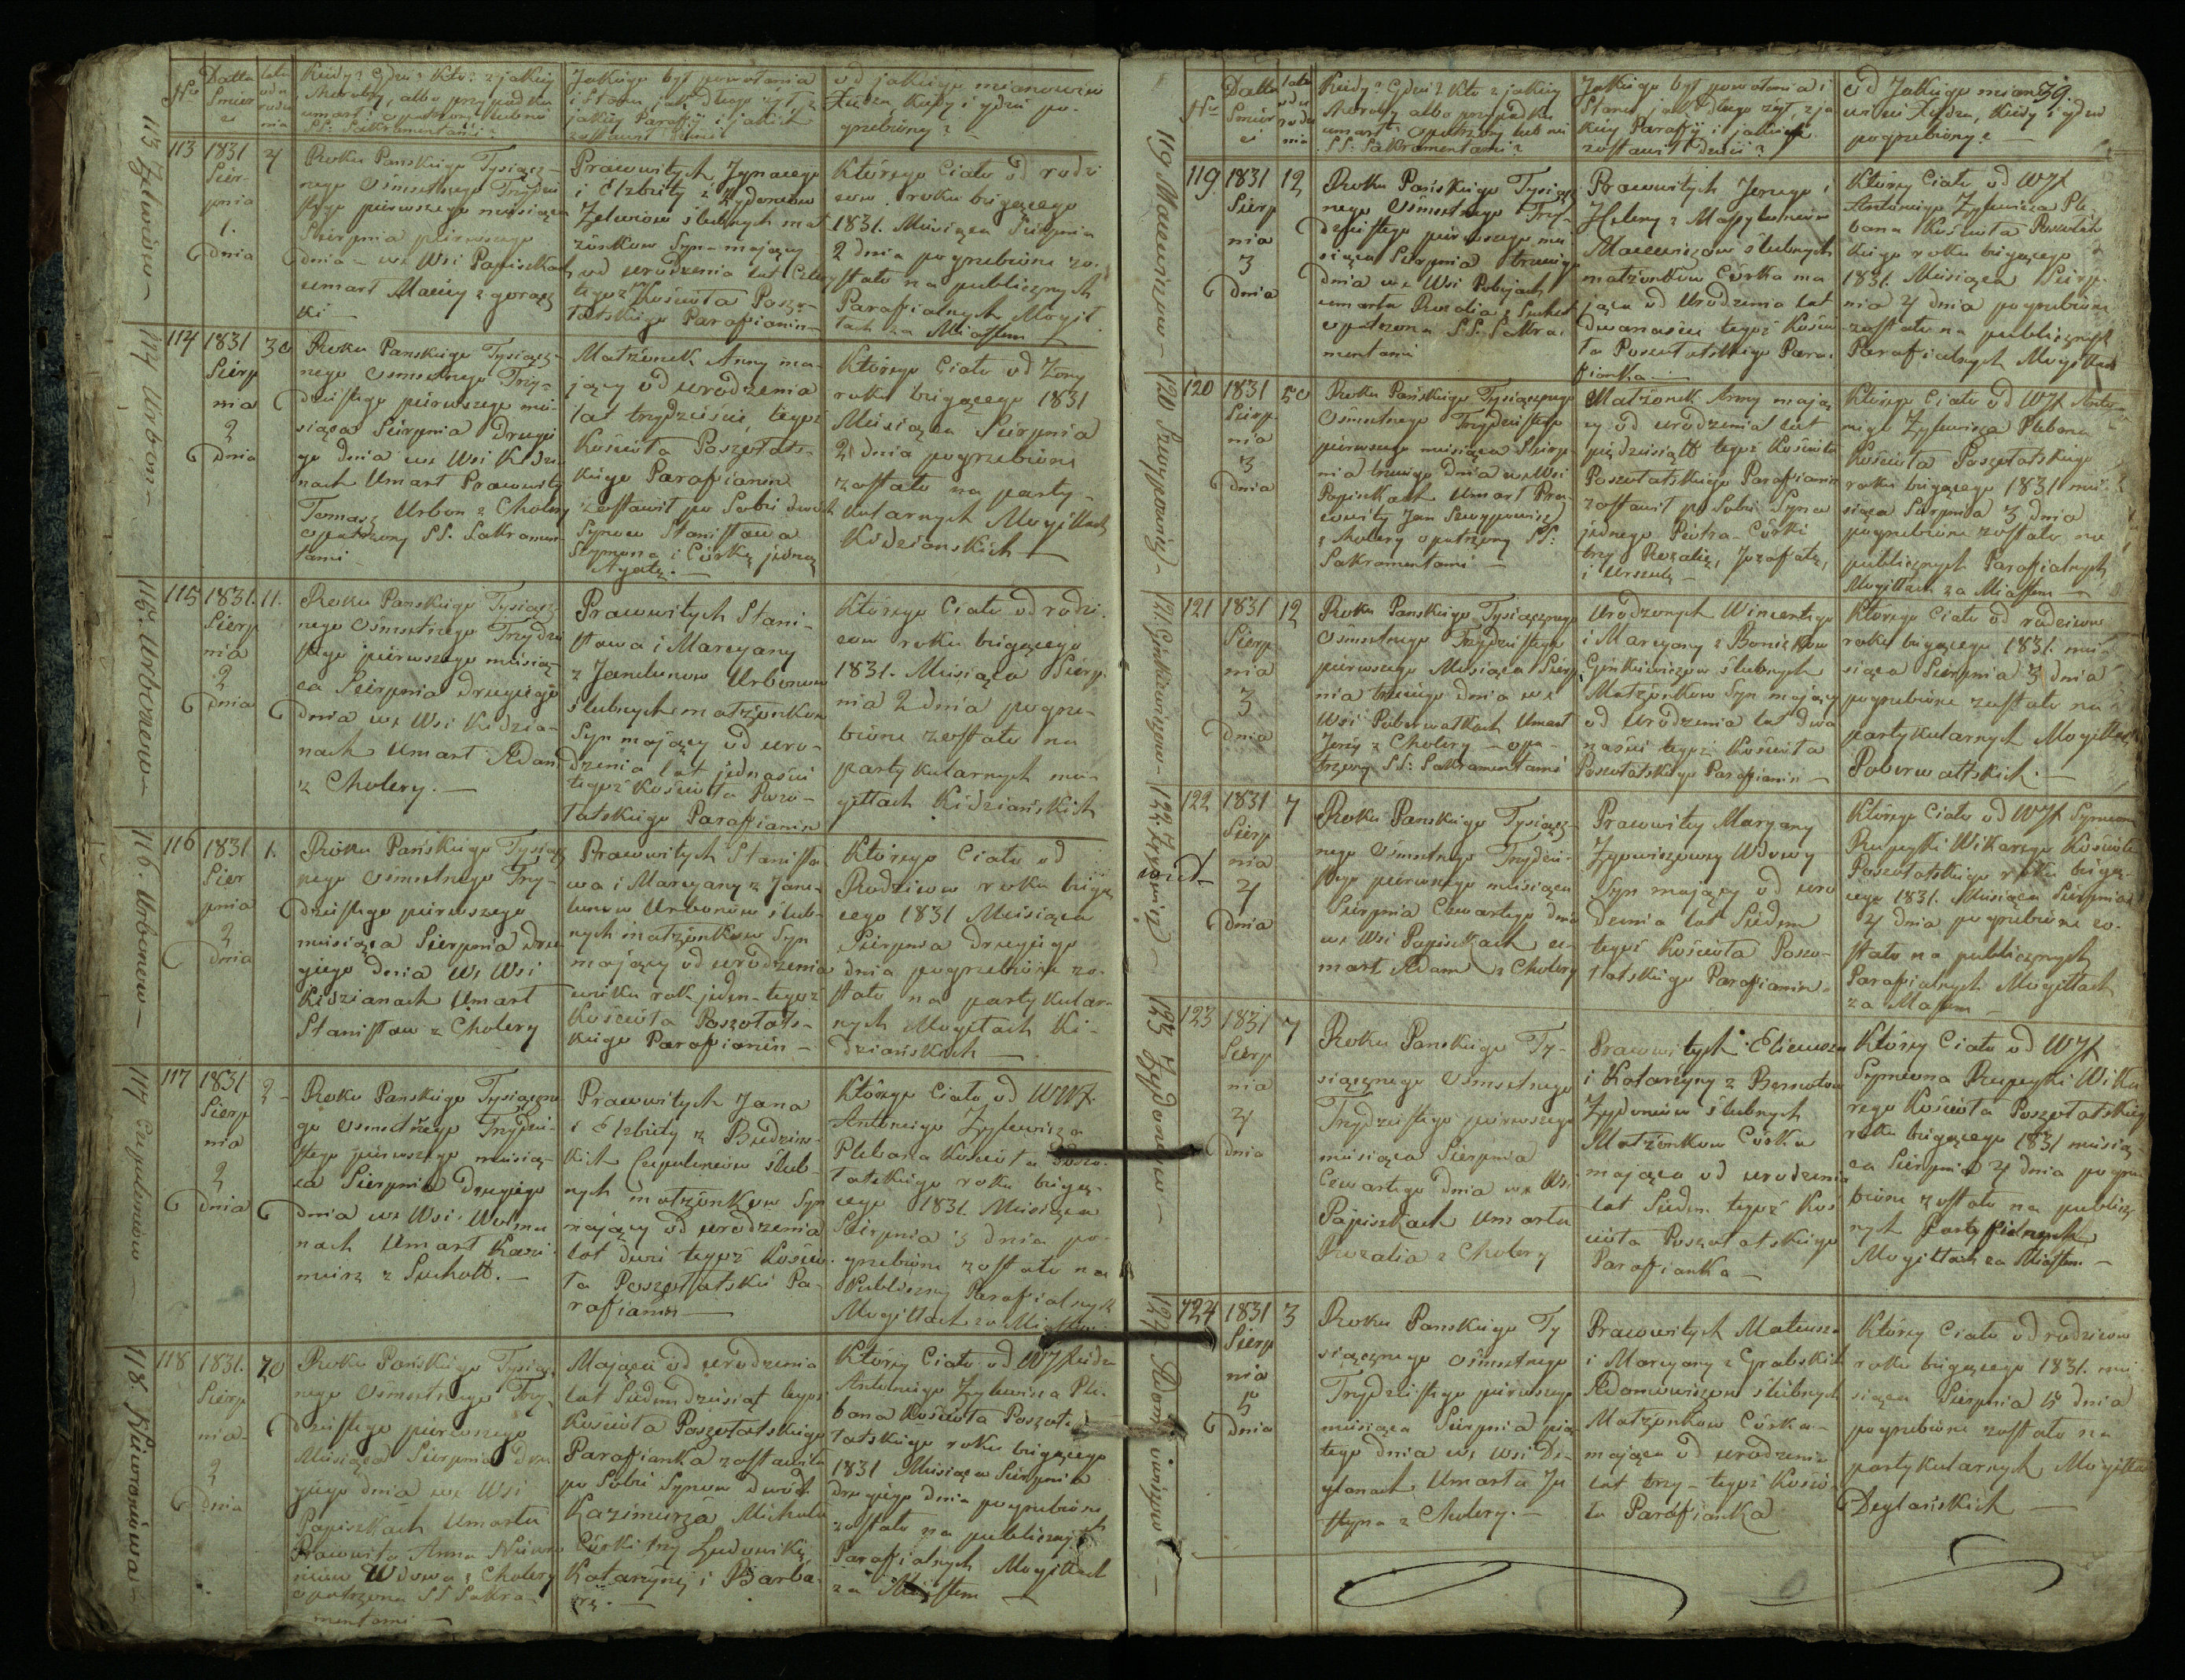 No
Datta Smierci
lata od urodzenia
Kiedy? Gdzie? Kto? z jakiey
choroby, albo przypadku
umarł? opatrzony lub nie
SS: Sakramentami?
Jakiego był powołania
i Stanu jak długo żył, z
jakiey Parafij i jakich
zostawił dzieci
od jakiego mianowicie
Xiędza, kiedy i gdzie po-
grzebiony? –
113 Zelwiów –
113
1831
Sier-
pnia
1.
dnia
4
Roku Panskiego Tysiącz-
nego Ośmsetnego Trzydzie
stego pierwszego miesiąca
Sierpnia pierwszego
dnia – we Wsi Papiszkach
umarł Maciey z gorącz
ki –
Prawowitych Jgnacego
i Elzbiety z Zydonow
Zelwiow slubnych mał
zonkow Syn – mający
od urodzenia lat Cztery
tegoż Kościoła Poszo-
łatskiego Parafianin –
Którego Ciało od rodzi
cow roku bieżącego
1831. Miesiąca Sierpnia
2 dnia pogrzebione zo-
stało na publicznych
Parafialnych Mogił
łach za Miastem
114 Urbon –
114
1831
Sierp
nia
2
Dnia
30
Roku Panskiego Tysiącz-
nego Osmsetnego Trzy-
dziestego pierwszego mie-
siąca Sierpnia Drugie
go Dnia we Wsi Kidzia
nach Umarł Prawowity
Tomasz Urbon z Cholery
opatrzony SS. Sakramen
tami
Małżonek Anny ma-
jący od urodzenia
lat trzydzieści, tegoż
Kościoła Poszołats-
kiego Parafianin
zostawił po Sobie dwoch
Synow Stanisława
Szymona i Córkę jedną
Agatę. –
Którego Ciało od Zony
roku bieżącego 1831
Miesiąca Sierpnia
2 dnia pogrzebione
zostało na party-
kularnych Mogiłkach
Kidzianskich –
115. Urbonow –
115
1831.
Sierp
nia
2
Dnia
11.
Roku Panskiego Tysiącz
nego Ośmsetnego Trzydzie
stego pierwszego miesią-
ca Sierpnia drugiego
dnia we Wsi Kidzia-
nach Umarł Adam
z Cholery. –
Prawowitych Stani-
sława i Maryany
z Janelunow Urbonow
slubnych małżonkow
Syn mający od uro-
dzenia lat jednaście
tegoż Kościoła Poszo-
łatskiego Parafianin
Którego Ciało od rodzi
cow roku bieżącego
1831. Miesiąca Sierp-
nia 2 dnia pogrze-
bione zostało na
partykularnych mo-
giłłach Kidziańskich
116. Urbonow –
116
1831
Sier
pnia
2
dnia
1.
Roku Pańskiego Tysiącz
nego Osmsetnego Trzy-
dziestego pierwszego
miesiąca Sierpnia Dru
giego Dnia We Wsi
Kidzianach Umarł
Stanisław z Cholery
Prawowitych Stanisła-
wa i Maryany z Jane-
lunow Urbonow slub-
nych małżonkow Syn
mający od urodzenia
wieku rok jeden – tegoż
Kościoła Poszołats-
kiego Parafianin –
Którego Ciało od
Rodzicow roku bieżą
cego 1831 Miesiąca
Sierpnia drugiego
dnia pogrzebione zo-
stało na partykular-
nych Mogiłach Ki-
dziańskich –
117 Czepulonow –
117
1831
Sierp
nia
2
dnia
2 –
Roku Panskiego Tysiączne
go Osmsetnego Trzydzie-
stego pierwszego miesią-
ca Sierpnia Drugiego
dnia we Wsi Wolmu
nach Umarł Kazi-
mierz z Suchott. –
Prawowitych Jana
i Elzbiety z Budziw-
kich Czepulonow slub-
nych małżonkow Syn
mający od urodzenia
lat dwie tegoż Koscio-
ła Poszołatskie Pa-
rafianin –
Którego Ciało od WWJ.
Antoniego Zyglewicza
Plebana Kościoła Poszo-
łatskiego roku bieżą-
cego 1831. Miesiąca
Sierpnia 3 dnia po-
grzebione zostało na
Publiczny Parafialnych
Mogiłłach za Miastem
118. Nieuronowa –
118
1831.
Sierp
nia –
2
dnia
70
Roku Pańskiego Tysiącz
nego Osmsetnego Trzy-
dziestego pierwszego
Miesiąca Sierpnia Dru
giego dnia we Wsi
Papiszkach Umarła
Prawowita Anna
Wdowa z Cholery
opatrzona SS Sakra-
mentami –
Mająca od urodzenia
lat Siedmdziesiąt tegoż
Kościoła Poszołatskiego
Parafianka zostawiła
po Sobie Synow dwóch
Kazimierza Michała
Córki trzy Ludowikę
Katarzynę i Barba-
rę. –
Którey Ciało od WJXiędza
Antoniego Zyglewicza Ple-
bana Kościoła Poszo-
łatskiego roku bieżącego
1831 Miesiąca Sierpnia
drugiego dnia pogrzebione
zostało na publicznych
Parafialnych Mogiłłach
za Miastem –
39
No
Datta Smierci
lata od urodzenia
Kiedy? Gdzie? Kto z jakiey
Choroby albo przypadku
umarł? Opatrzony lub nie
SS: Sakramentami?
Jakiego był powołania i
Stanu, jak długo żył z ja
kiey Parafij i jakich
zostawił dzieci?
Od Jakiego miano
wicie Xiędza, Kiedy i gdzie
pogrzebiony? –
119 Macewiczow –
119.
1831
Sierp
nia
3
dnia
12
Roku Pańskiego Tysiącz
nego Ośmsetnego Trzy-
dziestego pierwszego mie
siąca Sierpnia trzeciego
dnia we Wsi Pobojach
umarła Rozalia z Suchot
opatrzona SS. Sakra-
mentami
Prawowitych Jerzego i
Heleny z
Macewiczow slubnych
małżonkow Córka ma
jąca od Urodzenia lat
dwanaście tegoż Kościo
ła Poszołatskiego Para-
fianka –
Którey Ciało od WJX
Antoniego Zyglewicza Ple-
bana Kościoła Poszołats
kiego roku bieżącego
1831. Miesiąca Sierp-
nia 4 dnia pogrzebione
zostało na publicznych
Parafialnych Mogiłkach
120 Szwypowicz –
120
1831
Sierp-
nia
3
dnia
50
Roku Pańskiego Tysiącznego
Osmsetnego Trzydziestego
pierwszego miesiąca Sierp-
nia trzeciego Dnia we Wsi
Papiszkach Umarł Pra-
wowity Jan Szwypowicz
z Cholery opatrzony SS:
Sakramentami –
Małżonek Anny mają
cy od urodzenia lat
pięćdziesiąt tegoż Kościoła
Poszołatskiego Parafianin
zostawił po Sobie Syna
jednego Piotra – Córki
trzy Rozalię, Jozafatę,
i Urszulę –
Którego Ciało od WJX Anto-
niego Zyglewicza Plebana
Kościoła Poszołatskiego
roku bieżącego 1831 mie-
siąca Sierpnia 3 dnia
pogrzebione zostało na
publicznych Parafialnych
Mogiłłach za Miastem –
121. Ginkiewiczow –
121
1831
Sierp
nia
3
dnia
12
Roku Panskiego Tysiącznego
Osmsetnego Trzydziestego
pierwszego Miesiąca Sierp
nia trzeciego dnia we
Wsi Poberwałkach Umarł
Jerzy z Cholery – opa-
trzony SS: Sakramentami
Urodzonych Wincentego
i Maryany z
Ginkiewiczow slubnych
Małżonkow Syn mający
od Urodzenia lat dwa
naście tegoż Kościoła
Poszołatskiego Parafianin –
Którego Ciało od rodzicow
roku bieżącego 1831. mie
siąca Sierpnia 3 dnia
pogrzebione zostało na
partykularnych Mogiłkach
Poberwałtskich. –
122
122
1831
Sierp
nia
4
dnia
7
Roku Panskiego Tysiącz-
nego Ośmsetnego Trzydzie-
stego pierwszego miesiąca
Sierpnia Czwartego dnia
we Wsi Papiszkach u-
marł Adam z Cholery
Prawowitey Maryany
Wdowy
Syn mający od uro
dzenia lat Siedm
tegoż Kościoła Poszo-
łatskiego Parafianin –
Którego Ciało od WJX Symeona
Rupeyki Wikarego Kościoła
Poszołatskiego roku bieżą-
cego 1831. Miesiąca Sierpnia
4 dnia pogrzebione zo-
stało na publicznych
Parafialnych Mogiłłach
za Miastem –
123 Zydonow –
123
1831
Sierp
nia
4
dnia
7
Roku Panskiego Ty-
siącznego Osmsetnego
Trzydziestego pierwszego
miesiąca Sierpnia
Czwartego dnia we Wsi
Papiszkach Umarła
Rozalia z Cholery
Prawowitych
i Katarzyny z Bernotow
Zydonow slubnych
Małżonkow Córka
mająca od urodzenia
lat Siedm tegoż Koś
cioła Poszołatskiego
Parafianka –
Którey Ciało od WJX
Symeona Rupeyki Wika
rego Kościoła Poszołatskiego
roku bieżącego 1831 miesią-
ca Sierpnia 4 dnia pogrze
bione zostało na publicz
nych Parafialnych
Mogiłłach za Miastem –
124 Adomowiczow –
124
1831
Sierp
nia
5
dnia
3
Roku Panskiego Ty
siącznego Ośmsetnego
Trzydziestego pierwszego
miesiąca Sierpnia pią
tego dnia we Wsi De-
glanach Umarła Ju
styna z Cholery. –
Prawowitych Mateusza
i Maryany z Grabskich
Adomowiczow slubnych
Małżonkow Córka –
mająca od urodzenia
lat trzy – tegoż Kościo
ła Parafianka
Którey Ciało od rodzicow
roku bieżącego 1831. mie
siąca Sierpnia 5 dnia
pogrzebione zostało na
partykularnych Mogiłłach
Deglańskich –